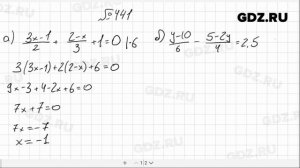 GDZ.RU
№441
а) (3x-1)/2 + (2-x)/3 + 1 = 0 |·6
б) (y-10)/6 - (5-2y)/4 = 2,5
3(3x-1)+2(2-x)+6=0
9x-3+4-2x+6=0
7x+7=0
7x=-7
x=-1